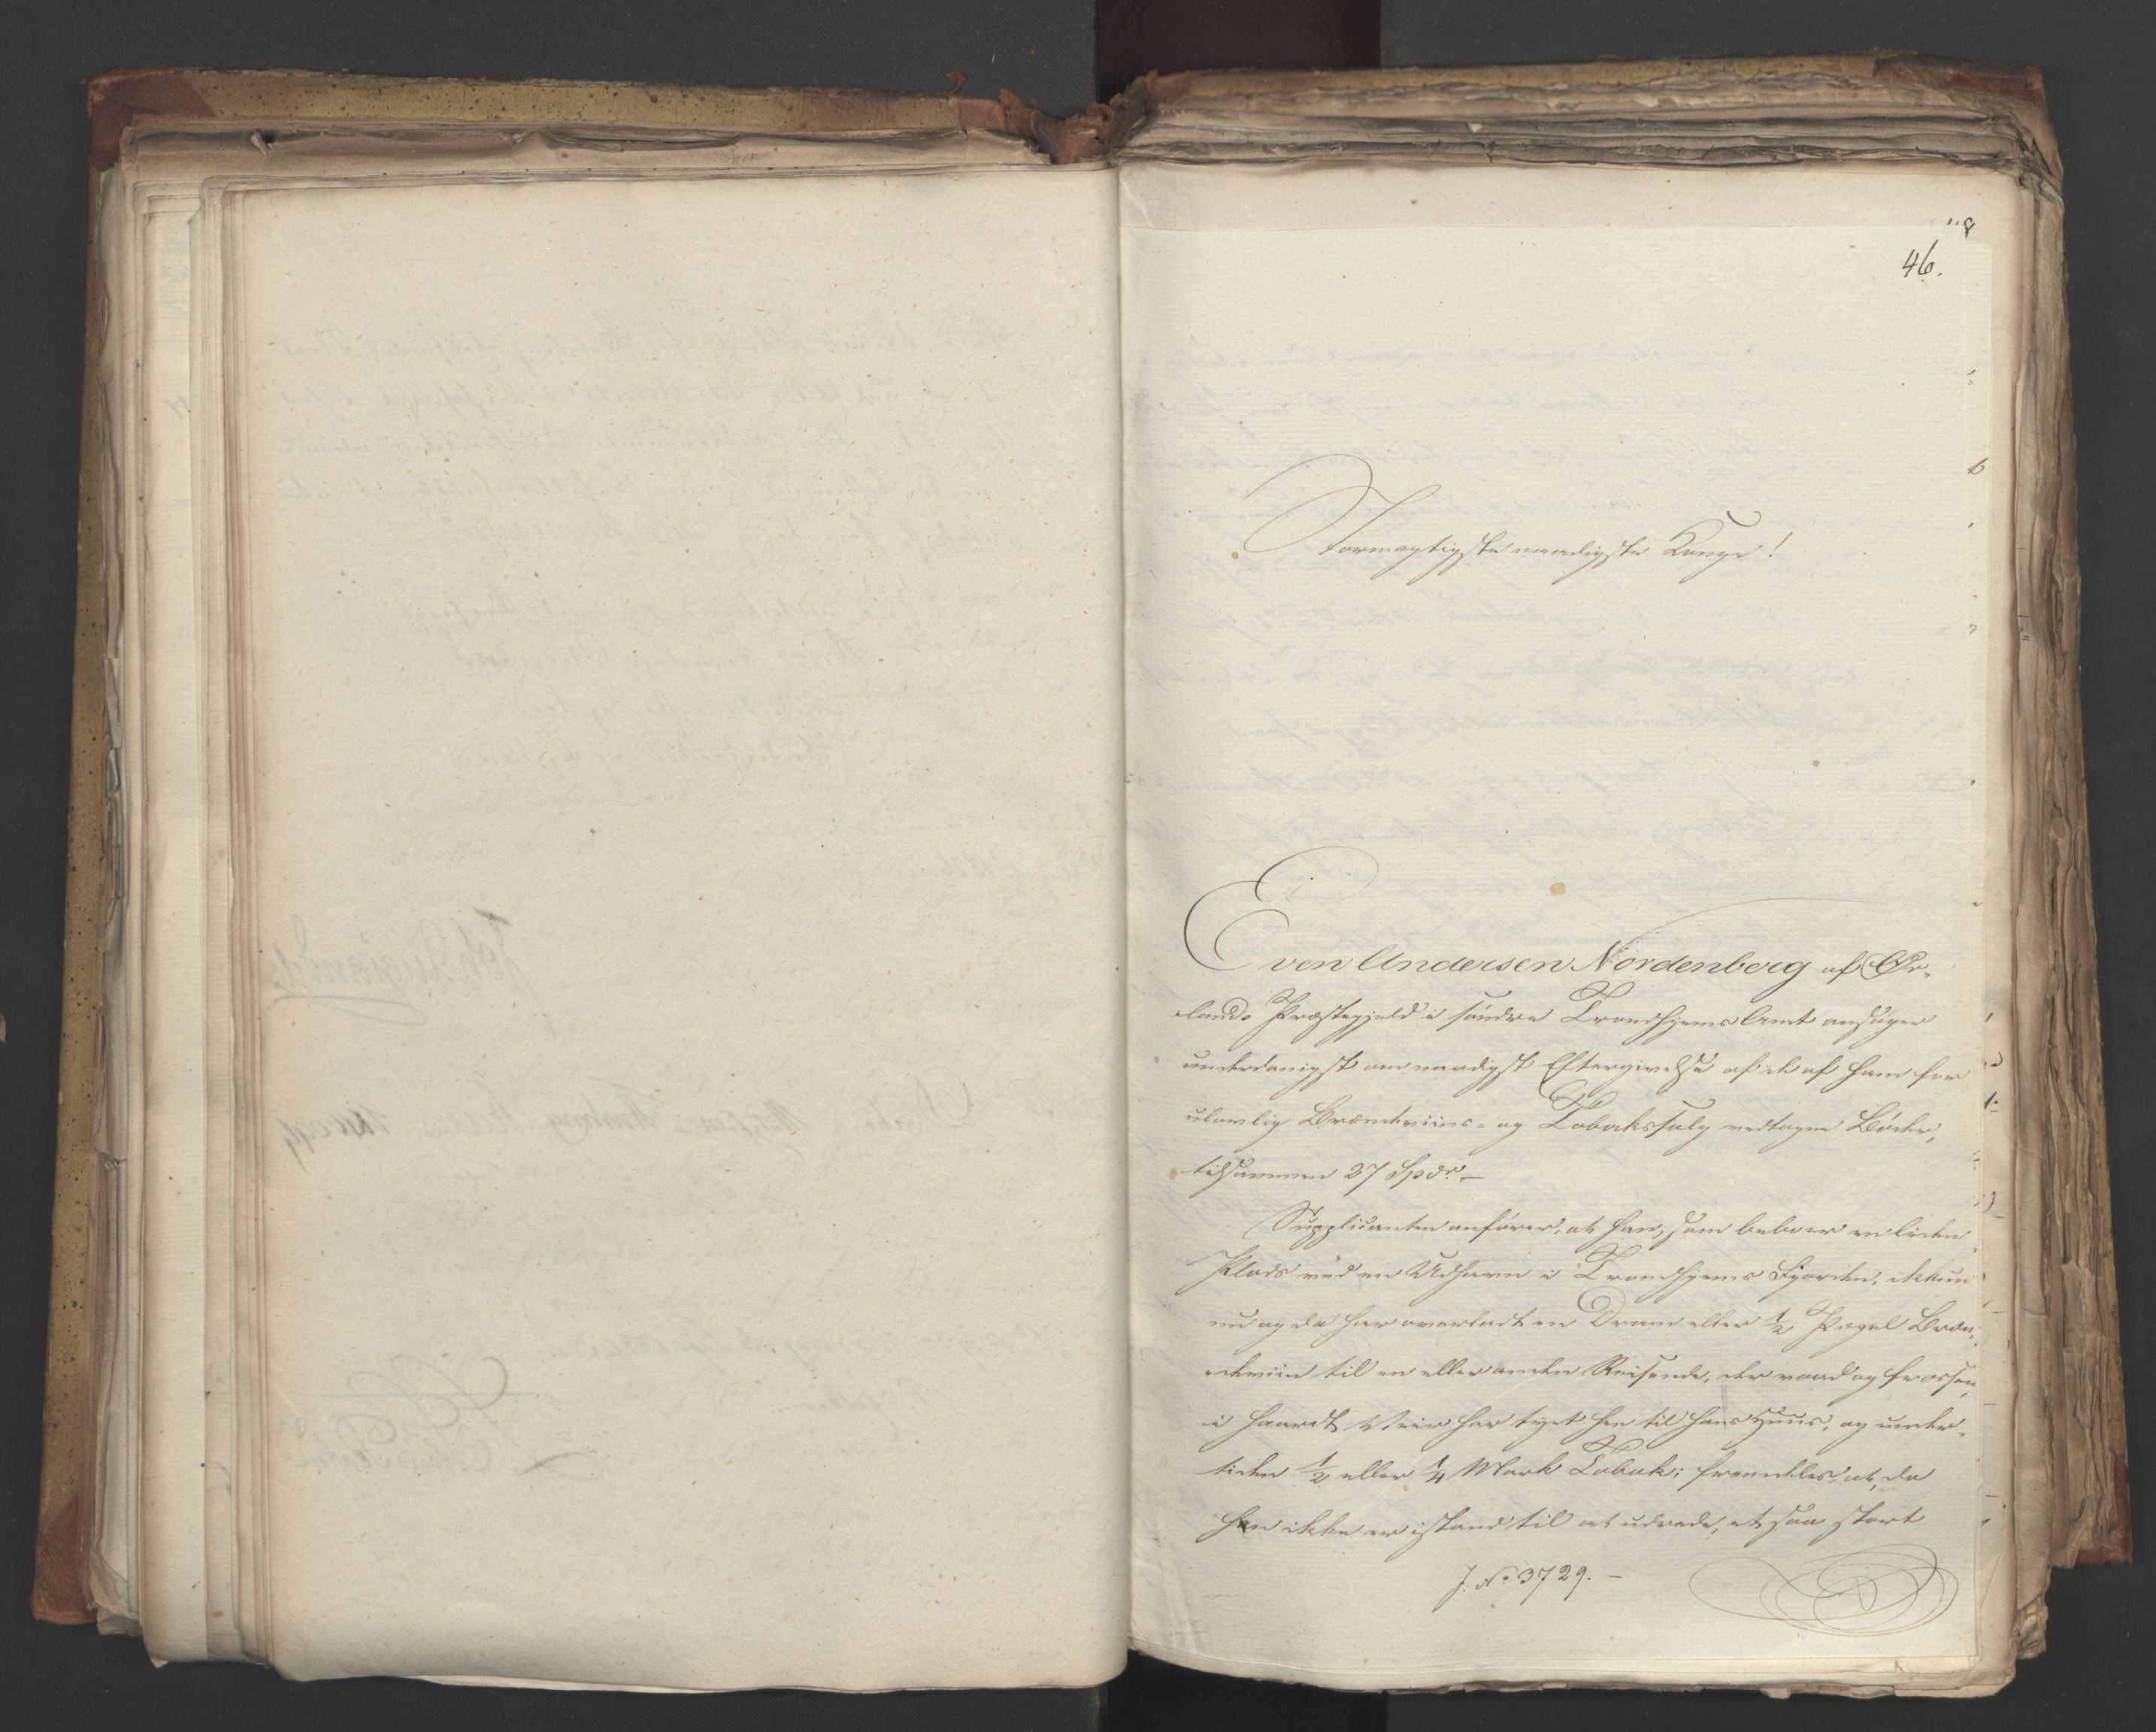 118
46.
Stormægtigste naadigste Konge!
Even Andersen Nordenberg af Ør-
lands Præstegjeld i søndre Trondhjems Amt ansøger
underdanigst om naadigst Eftergivelse af de af ham for
ulovlig Brændeviins- og Tobakssalg vedtagne Bøder,
tilsammen 27 Spdr. –
Supplicanten anfører, at han, som beboer en liden
Plads ved en Udhavn i Trondhjems Fjorden, ikkun
nu og da har overladt en Dram eller ½ Pægel Bræn-
deviin til en eller anden Reisende, der vaad og frossen,
i haardt Veir har tyet hen til hans Huus, og under-
tiden ½ eller ¼ Mark Tobak; fremdeles, at, da
han ikke er istand til at udrede, et saa stort
J. No 3729. –